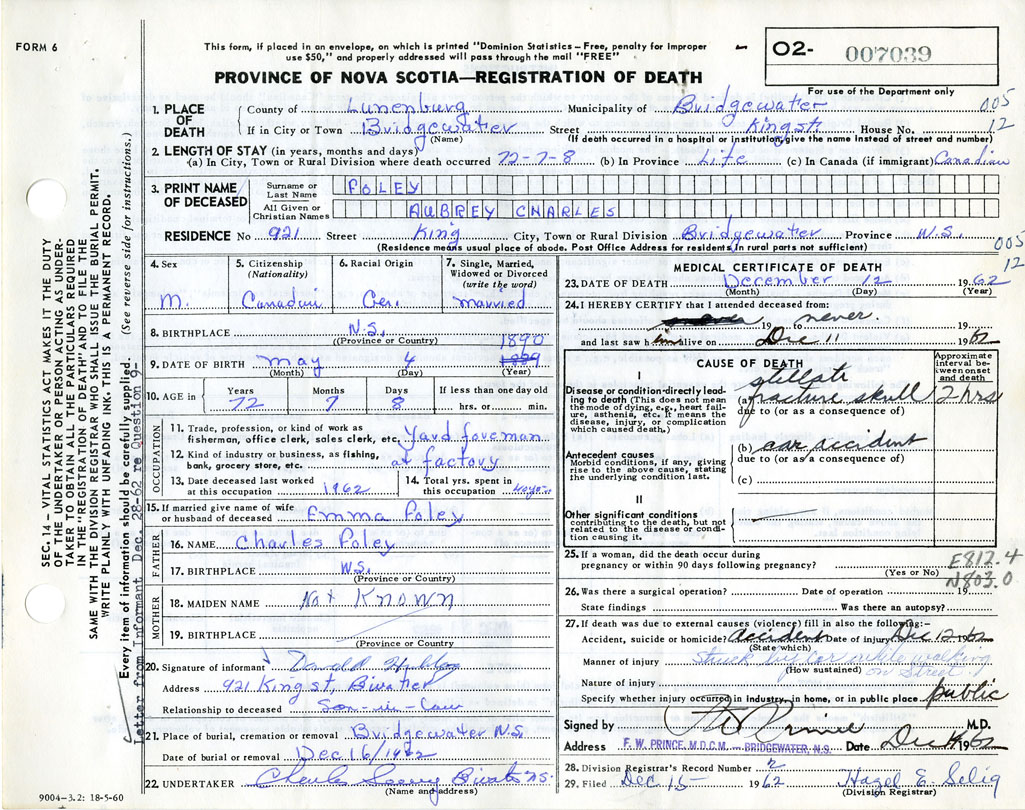 FORM 6
This form, if placed in an envelope, on which is printed "Dominion Statistics – Free, penalty for improper
use $50," and properly addressed will pass through the mail "FREE"
02- 007039
For use of the Department only
PROVINCE OF NOVA SCOTIA—REGISTRATION OF DEATH
1. PLACE OF DEATH
County of Lunenburg Municipality of Bridgewater 005
If in City or Town Bridgewater Street King St House No. 12
(Name) (If death occurred in a hospital or institution, give the name instead of street and number)
2. LENGTH OF STAY (in years, months and days)
(a) In City, Town or Rural Division where death occurred 72-7-8 (b) In Province Life (c) In Canada (if immigrant) Canadian
3. PRINT NAME OF DECEASED
Surname or Last Name FOLEY
All Given or Christian Names AUBREY CHARLES
RESIDENCE No 921 Street King City, Town or Rural Division Bridgewater Province N.S.
(Residence means usual place of abode. Post Office Address for residents in rural parts not sufficient)
005
12
4. Sex
M.
5. Citizenship
(Nationality)
6. Racial Origin
Ger.
7. Single, Married,
Widowed or Divorced
(write the word)
married
8. BIRTHPLACE N.S.
(Province or Country)
1890
9. DATE OF BIRTH May 4
(Month) (Day) (Year)
10. AGE in
Years Months Days If less than one day old
72 7 8 hrs. or min.
OCCUPATION
11. Trade, profession, or kind of work as
fisherman, office clerk, sales clerk, etc. Yard foreman
12. Kind of industry or business, as fishing,
bank, grocery store, etc. at factory
13. Date deceased last worked
at this occupation 1962
14. Total yrs. spent in
this occupation
15. If married give name of wife
or husband of deceased Emma Foley
FATHER
16. NAME Charles Foley
17. BIRTHPLACE N.S.
(Province or Country)
MOTHER
18. MAIDEN NAME Not Known
19. BIRTHPLACE
(Province or Country)
20. Signature of informant
Address 921 King st, B'water
Relationship to deceased Son-in-Law
21. Place of burial, cremation or removal Bridgewater N.S.
Date of burial or removal Dec 16/1962
22. UNDERTAKER
(Name and address)
9004-3.2: 18-5-60
MEDICAL CERTIFICATE OF DEATH
23. DATE OF DEATH December 12 1962
(Month) (Day) (Year)
24. I HEREBY CERTIFY that I attended deceased from:
19 to never. 19
and last saw him alive on Dec 11 1962
CAUSE OF DEATH
Approximate
interval between
onset
and death
I
Disease or condition directly lead-
ing to death (This does not mean
the mode of dying, e.g., heart fail-
ure, asthenia, etc. It means the
disease, injury, or complication
which caused death.)
stellate
(a) fracture skull 2 hrs
due to (or as a consequence of)
Antecedent causes
Morbid conditions, if any, giving
rise to the above cause, stating
the underlying condition last.
(b) car accident
due to (or as a consequence of)
(c)
II
Other significant conditions
contributing to the death, but not
related to the disease or condi-
tion causing it.
25. If a woman, did the death occur during
pregnancy or within 90 days following pregnancy?
(Yes or No)
E812.4
N803.0
26. Was there a surgical operation? Date of operation 19
State findings Was there an autopsy?
27. If death was due to external causes (violence) fill in also the following:—
Accident, suicide or homicide? Accident Date of injury Dec 12 1962
(State which)
Manner of injury Struck by car while walking
(How sustained) on Street
Nature of injury
Specify whether injury occurred in industry, in home, or in public place public
Signed by F W Prince M.D.
Address F. W. PRINCE, M.D.C.M. — BRIDGEWATER, N.S. Date Dec 14 1962
28. Division Registrar's Record Number
29. Filed Dec 15 1962 Hazel E. Selig
(Division Registrar)
SEC. 14 – VITAL STATISTICS ACT MAKES IT THE DUTY
OF THE UNDERTAKER OR PERSON ACTING AS UNDER-
TAKER TO OBTAIN ALL THE PARTICULARS REQUIRED
IN THE "REGISTRATION OF DEATH" AND TO FILE THE
SAME WITH THE DIVISION REGISTRAR WHO SHALL ISSUE THE BURIAL PERMIT.
WRITE PLAINLY WITH UNFADING INK. THIS IS A PERMANENT RECORD.
Every item of information should be carefully supplied. (See reverse side for instructions.)
Letter from Informant Dec. 28-62 re Question 9-